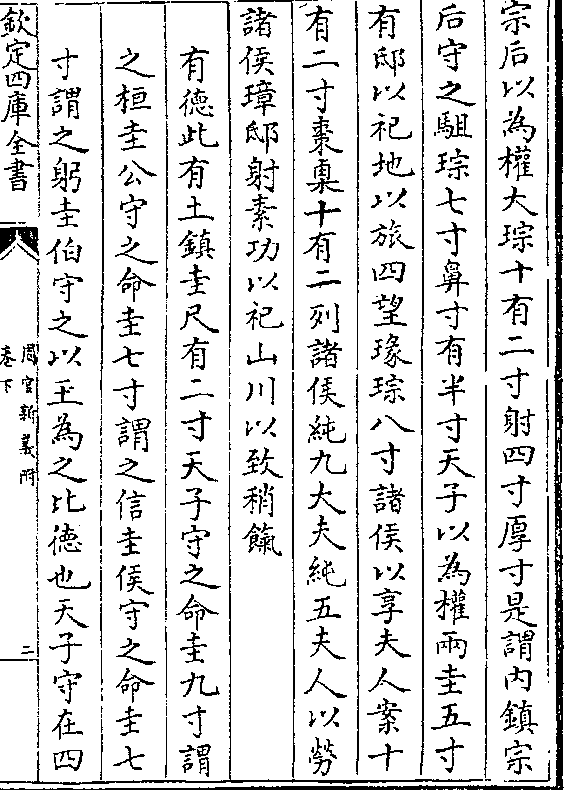 宗后以為權大琮十有二寸射四寸厚寸是謂內鎮宗
后守之駔琮七寸鼻寸有半寸天子以為權兩圭五寸
有邸以祀地以旅四望瑑琮八寸諸侯以享夫人案十
有二寸棗㮚十有二列諸侯純九大夫純五夫人以勞
諸侯璋邸射素功以祀山川以致稍餼
有德此有土鎮圭尺有二寸天子守之命圭九寸謂
之桓圭公守之命圭七寸謂之信圭侯守之命圭七
寸謂之躬圭伯守之以玉為之比德也天子守在四
欽定四庫全書
周官新義附
卷下
二